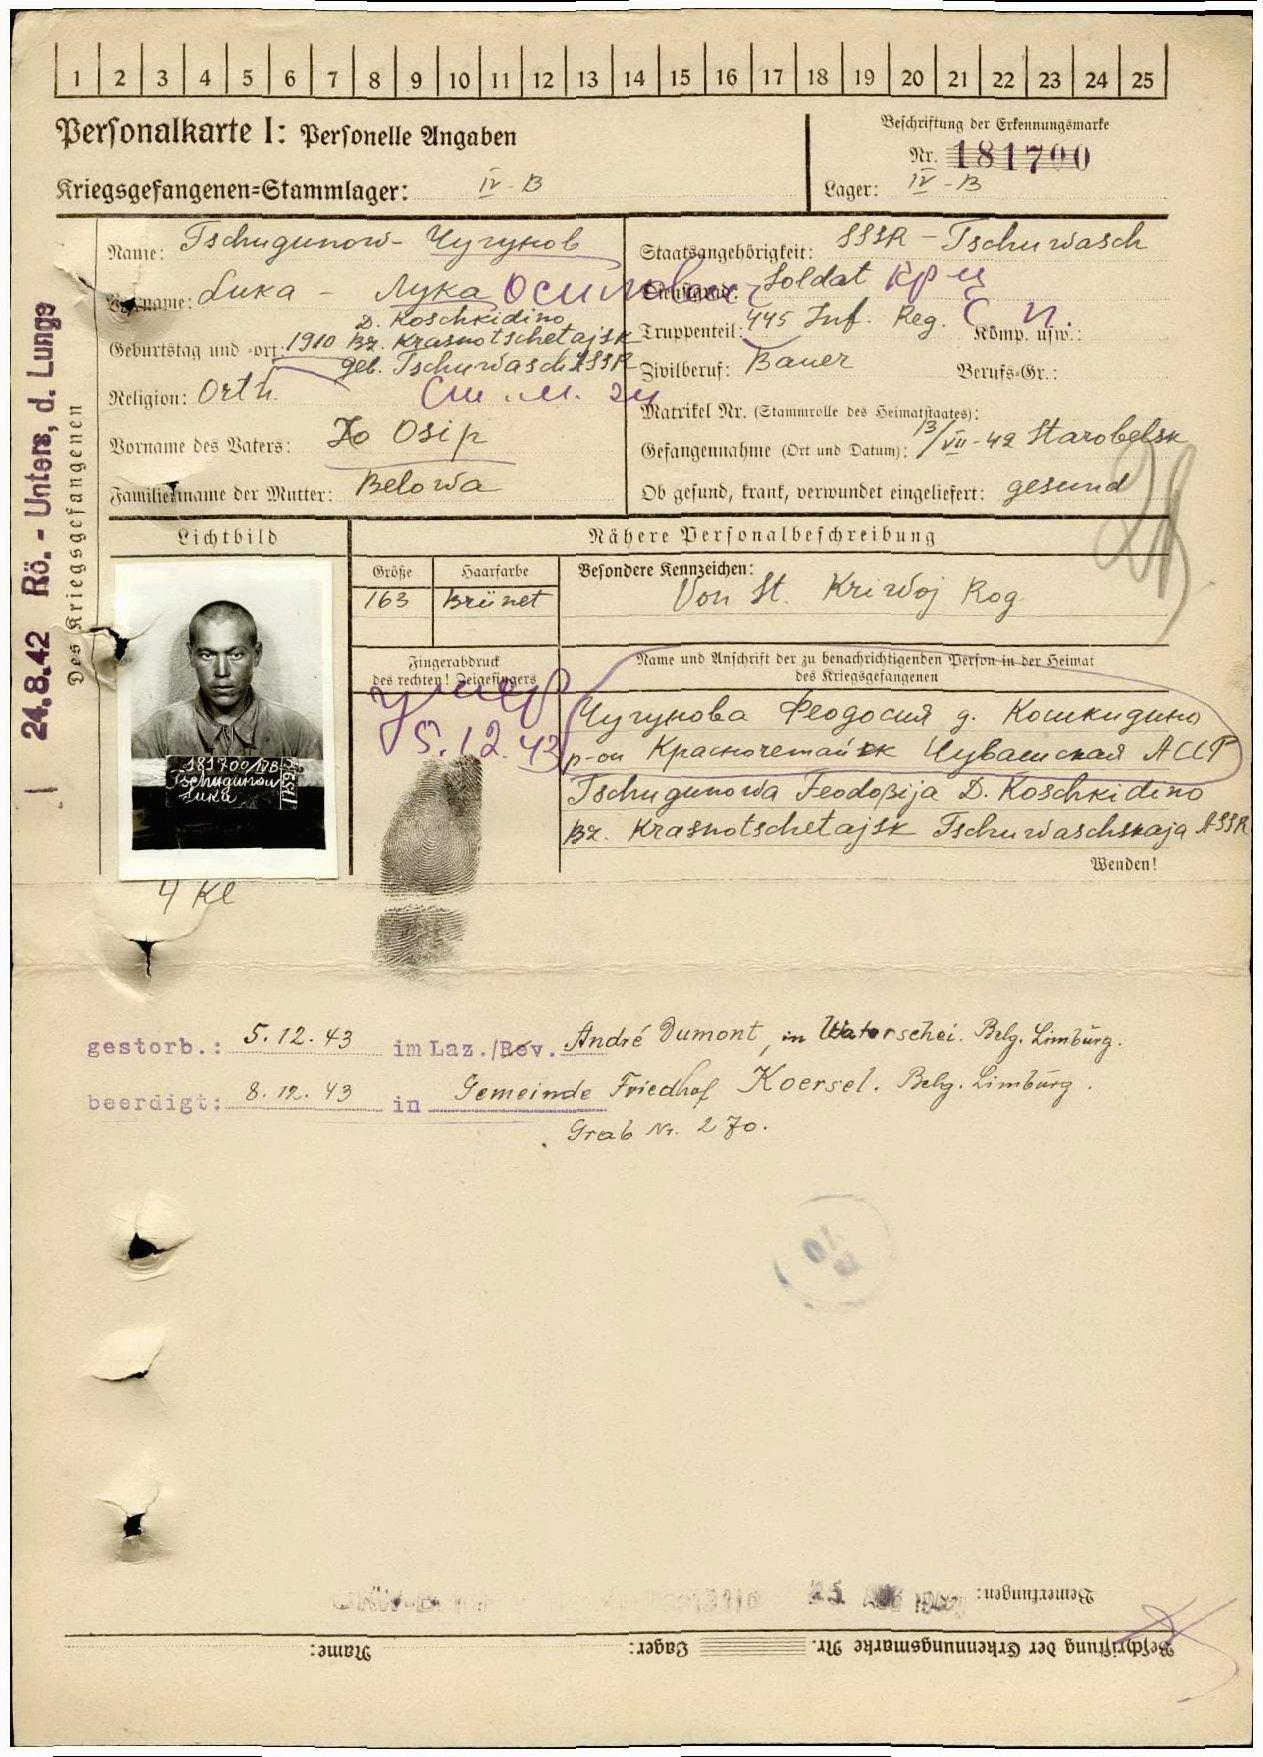 1 2 3 4 5 6 7 8 9 10 11 12 13 14 15 16 17 18 19 20 21 22 23 24 25
Personalkarte I: Personelle Angaben
Kriegsgefangenen=Stammlager: IV-B
Beschriftung der Erkennungsmarke
Nr. 181700
Lager: IV-B
24.8.42 Rö.-Unters, d. Lunge
Des Kriegsgefangenen
Name: Tschugunow - Чугунов
Vorname: Luka - Лука Осипович
Geburtstag und -ort: 1910 D. Koschkidino
Bz. Krasnotschetajsk
geb. Tschuwasch ASSR
Religion: Orth. См. м. 24
Vorname des Vaters: Jo Osip
Familienname der Mutter: Belowa
Staatsangehörigkeit: SSSR - Tschuwasch
Dienstgrad: Soldat кр-ц
Truppenteil: 445 Inf. Reg. с п. Komp. usw.:
Zivilberuf: Bauer Berufs-Gr.:
Matrikel Nr. (Stammrolle des Heimatstaates):
Gefangennahme (Ort und Datum): 13/VII-42 Starobelsk
Ob gesund, krank, verwundet eingeliefert: gesund
Lichtbild
Nähere Personalbeschreibung
Größe Haarfarbe Besondere Kennzeichen:
163 Brünet Von St. Kriwoj Rog
181700 IVB
Tschugunow
Luka
Fingerabdruck
des rechten! Zeigefingers
умер
5.12.43
Name und Anschrift der zu benachrichtigenden Person in der Heimat
des Kriegsgefangenen
Чугунова Феодосия д. Кошкидино
р-он Красночетайск Чувашская АССР
Tschugunowa Feodosija D. Koschkidino
Bz. Krasnotschetajsk Tschuwaschskaja ASSR
Wenden!
4 Kl
gestorb.: 5.12.43 im Laz./Rev. André Dumont, in Waterschei. Belg. Limbürg.
beerdigt: 8.12.43 in Gemeinde Friedhof Koersel. Belg. Limbürg.
Grab Nr. 270.
Bemerkungen: 25.
Beschriftung der Erkennungsmarke Nr. Lager: Name: